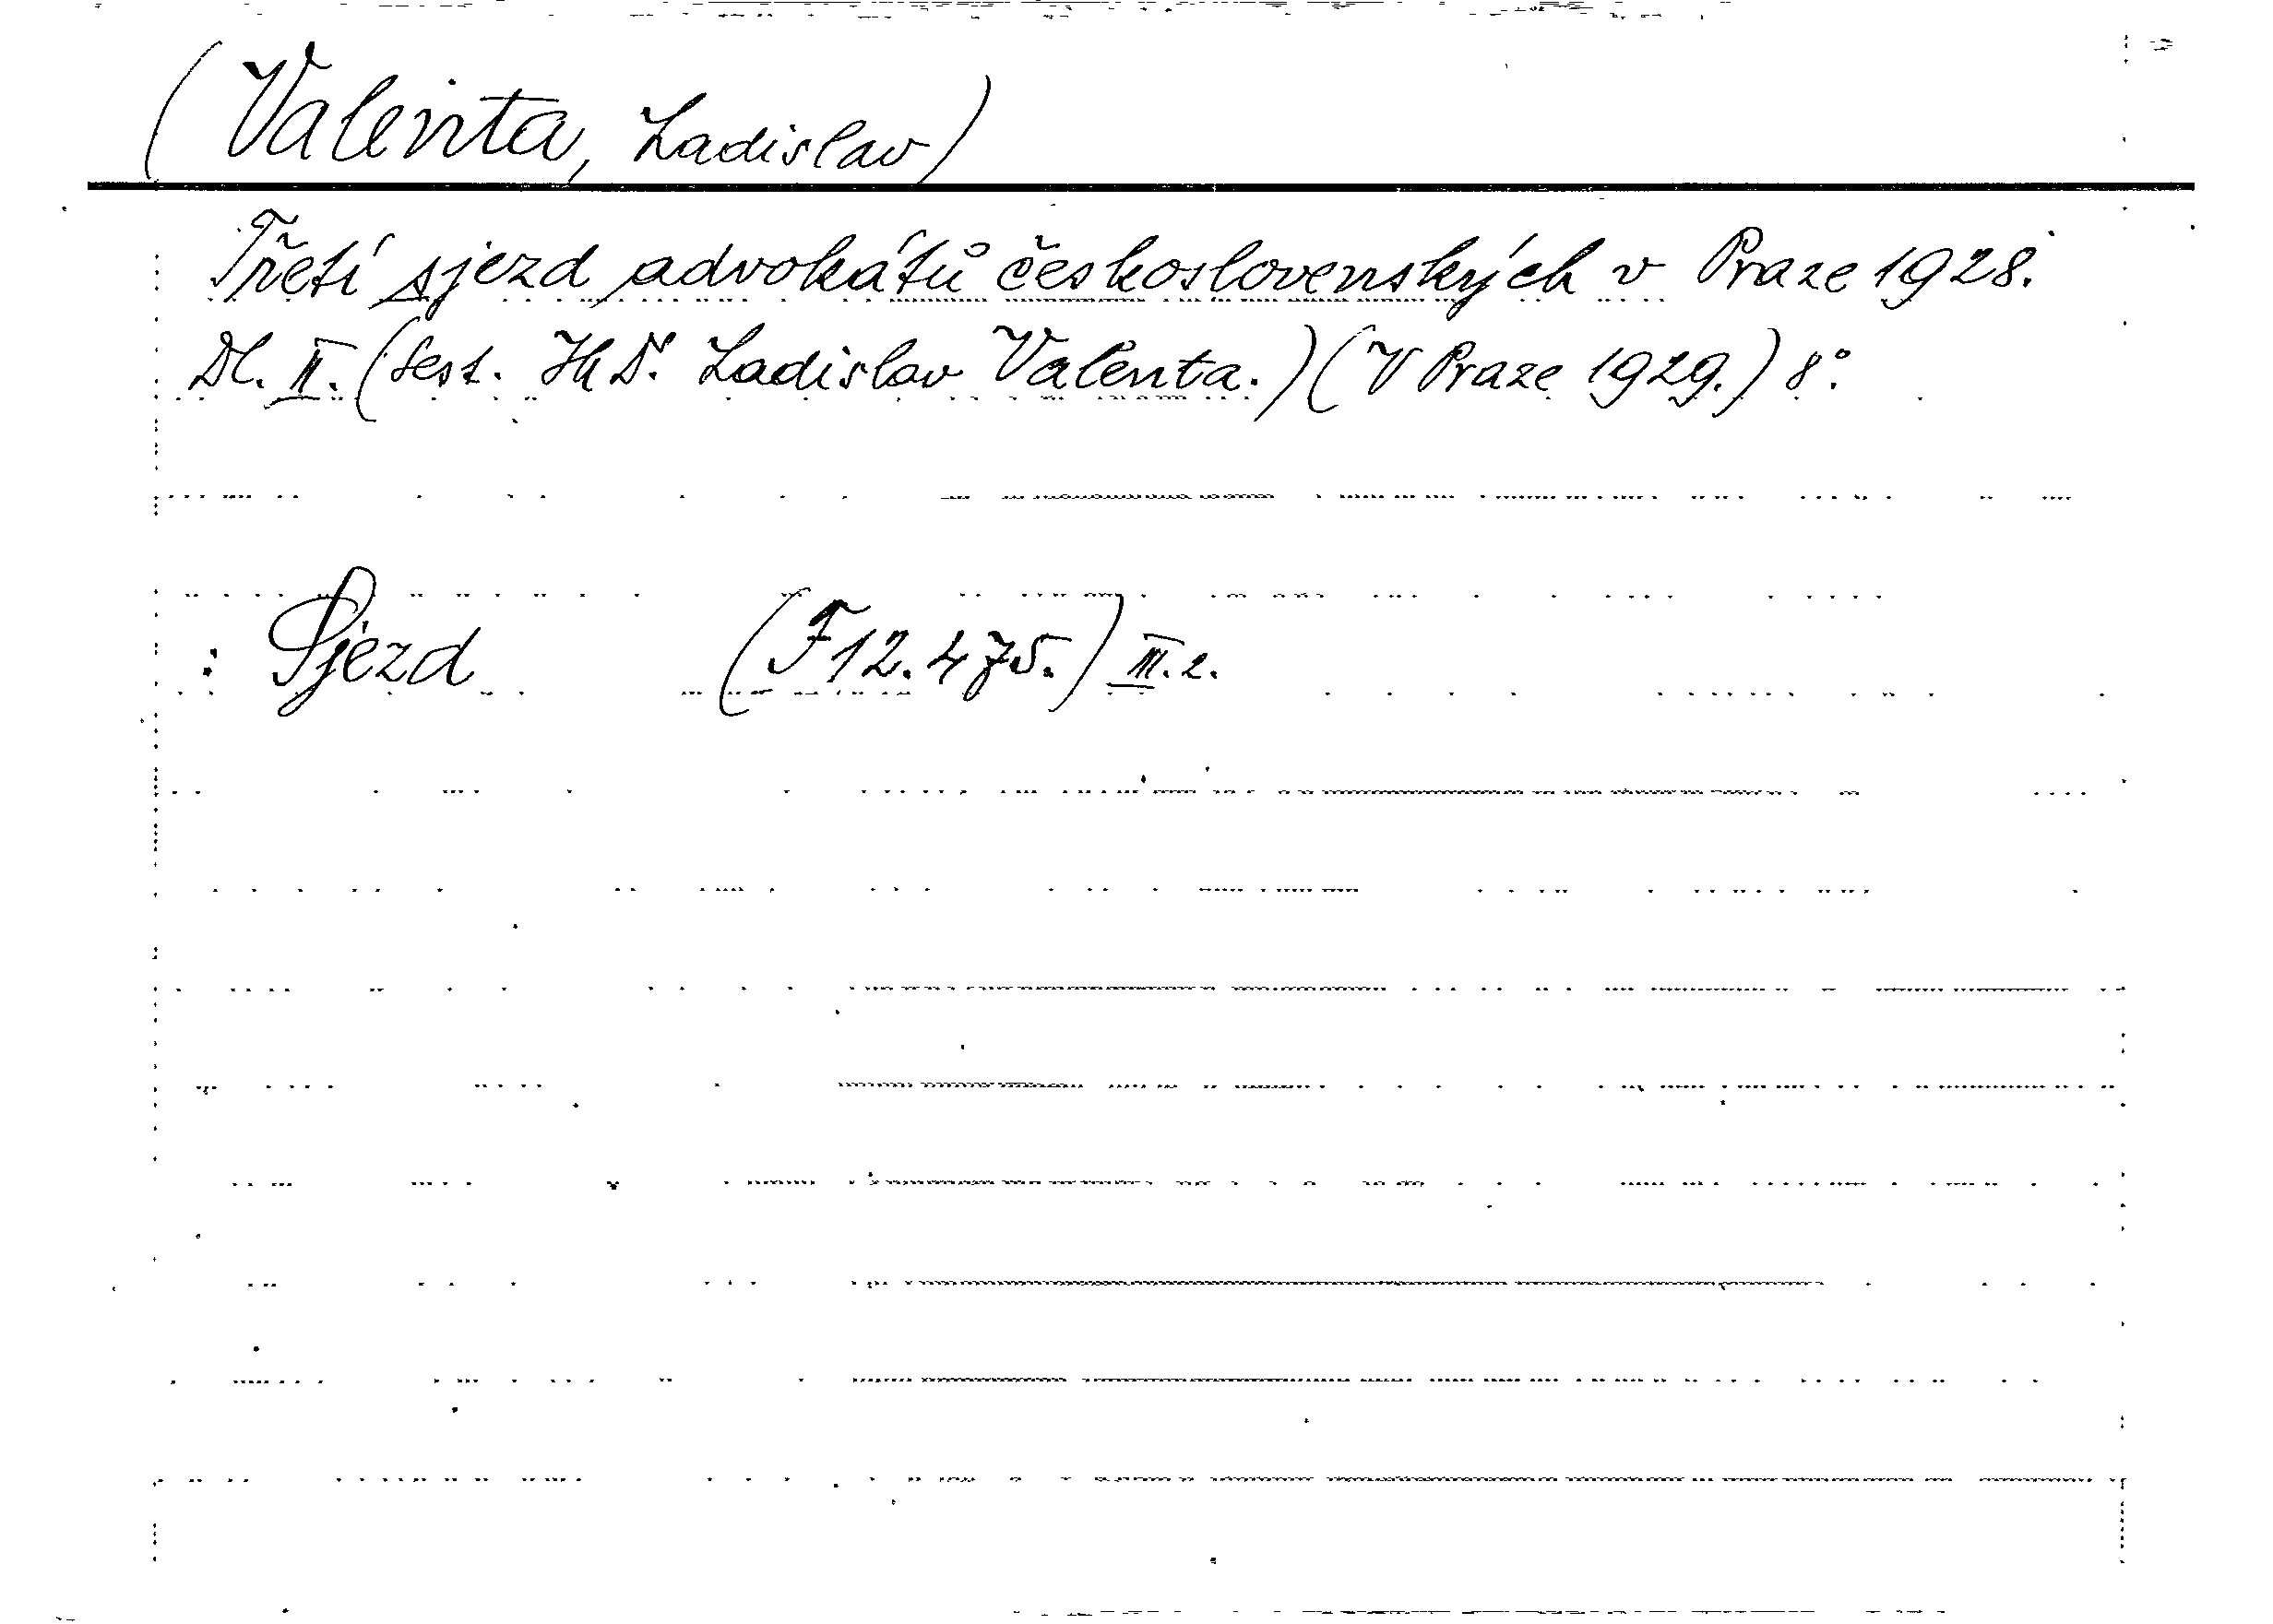 (Valenta, Ladislav)
Třetí sjezd advokátů československých v Praze 1928.
Dl. II. (Sest. JUDr. Ladislav Valenta.) (V Praze 1929.) 8°.
: Sjezd (F 12.475.) III.2.